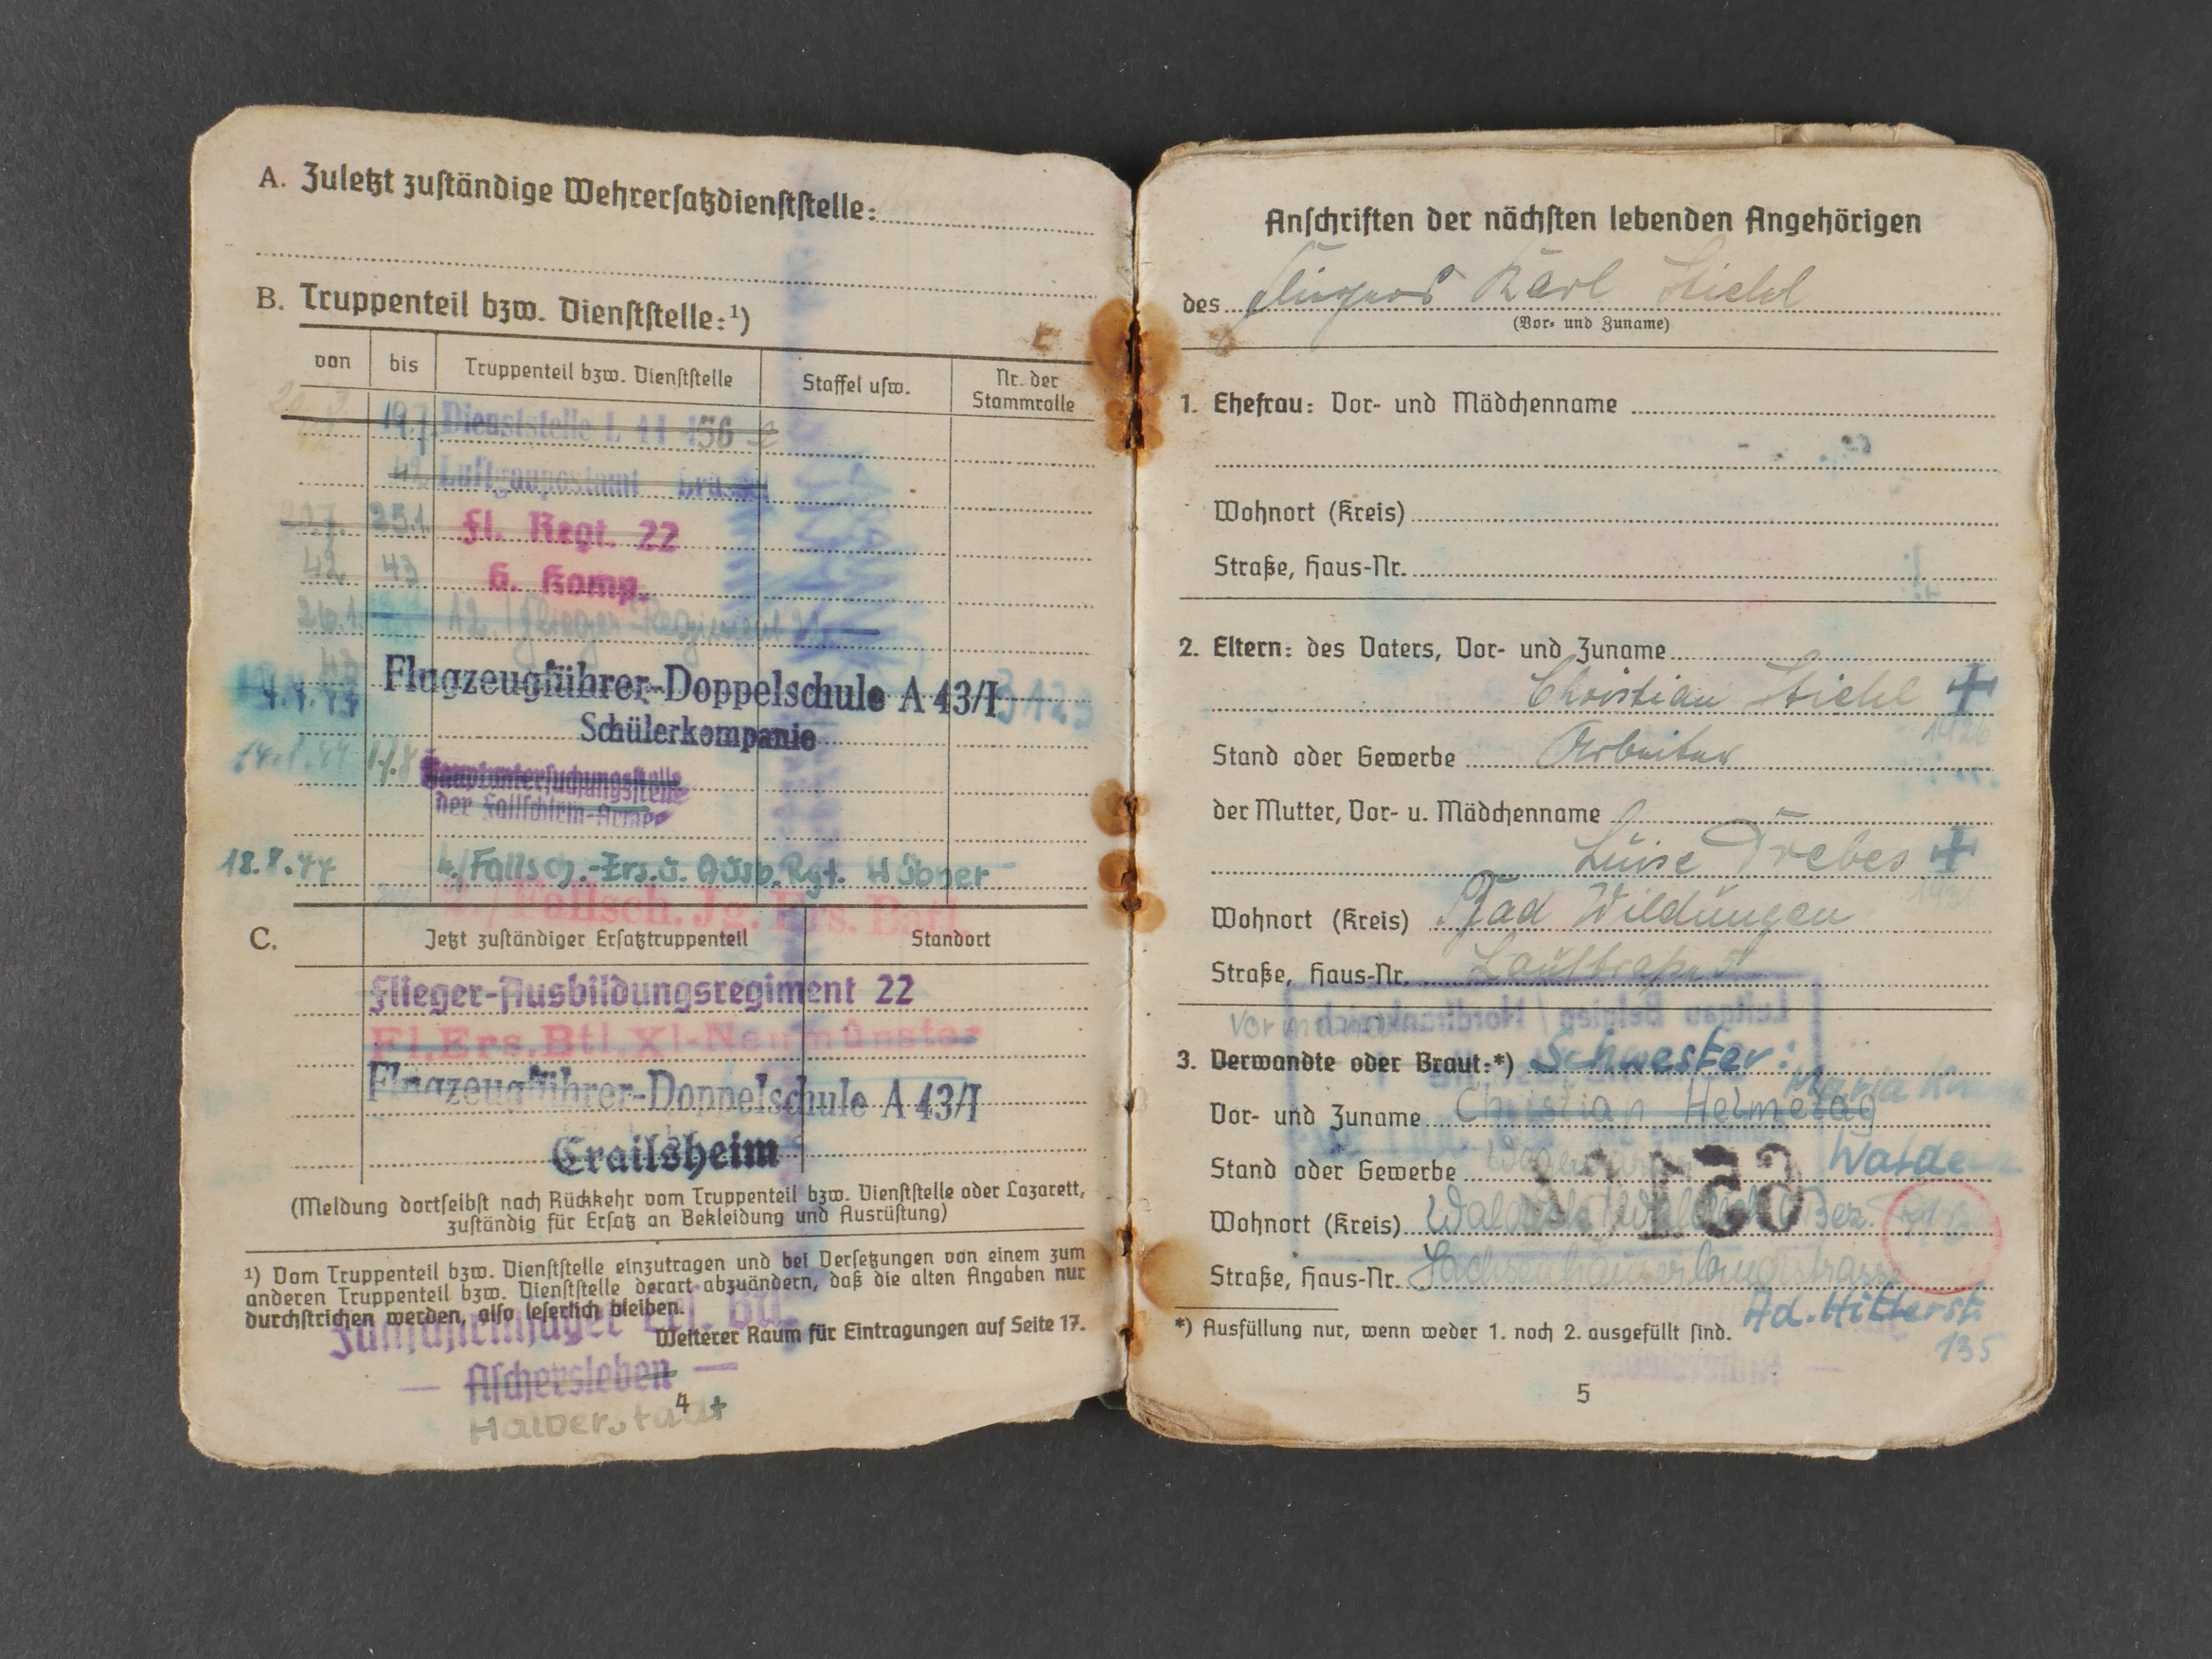 A. Zuletzt zuständige Wehrersatzdienststelle:
B. Truppenteil bzw. Dienststelle:¹)
von bis Truppenteil bzw. Dienststelle Staffel usw. Nr. der Stammrolle
19.7. Dienststelle L 11 156
42 Luftgaupostamt Brüssel
25.1. Fl. Regt. 22
42 43 6. Komp.
26.1. 12./Flieger-Regiment
43
Flugzeugführer-Doppelschule A 43/I
Schülerkompanie
Hauptuntersuchungsstelle
der Fallschirm-Armee
18.8.44 4./Fallsch.-Ers.u. Ausb.Rgt. Hübner
2./Fallsch. Jg. Ers. Batl.
C. Jetzt zuständiger Ersatztruppenteil Standort
Flieger-Ausbildungsregiment 22
Fl.Ers.Btl.XI-Neumünster
Flugzeugführer-Doppelschule A 43/I
Crailsheim
(Meldung dortselbst nach Rückkehr vom Truppenteil bzw. Dienststelle oder Lazarett,
zuständig für Ersatz an Bekleidung und Ausrüstung)
¹) Vom Truppenteil bzw. Dienststelle einzutragen und bei Versetzungen von einem zum
anderen Truppenteil bzw. Dienststelle derart abzuändern, daß die alten Angaben nur
durchstrichen werden, also leserlich bleiben.
Weiterer Raum für Eintragungen auf Seite 17.
— Aschersleben —
4
Halberstadt
Anschriften der nächsten lebenden Angehörigen
des Karl Stiehl
(Vor- und Zuname)
1. Ehefrau: Vor- und Mädchenname
Wohnort (Kreis)
Straße, Haus-Nr.
2. Eltern: des Vaters, Vor- und Zuname
Christian Stiehl +
Stand oder Gewerbe Arbeiter
der Mutter, Vor- u. Mädchenname
Luise Trebes +
Wohnort (Kreis) Bad Wildungen
Straße, Haus-Nr.
3. Verwandte oder Braut:*) Schwester:
Maria
Vor- und Zuname Christian Helmetag
Stand oder Gewerbe
Wohnort (Kreis) Bez.
Straße, Haus-Nr.
Ad. Hitlerstr.
135
*) Ausfüllung nur, wenn weder 1. noch 2. ausgefüllt sind.
5